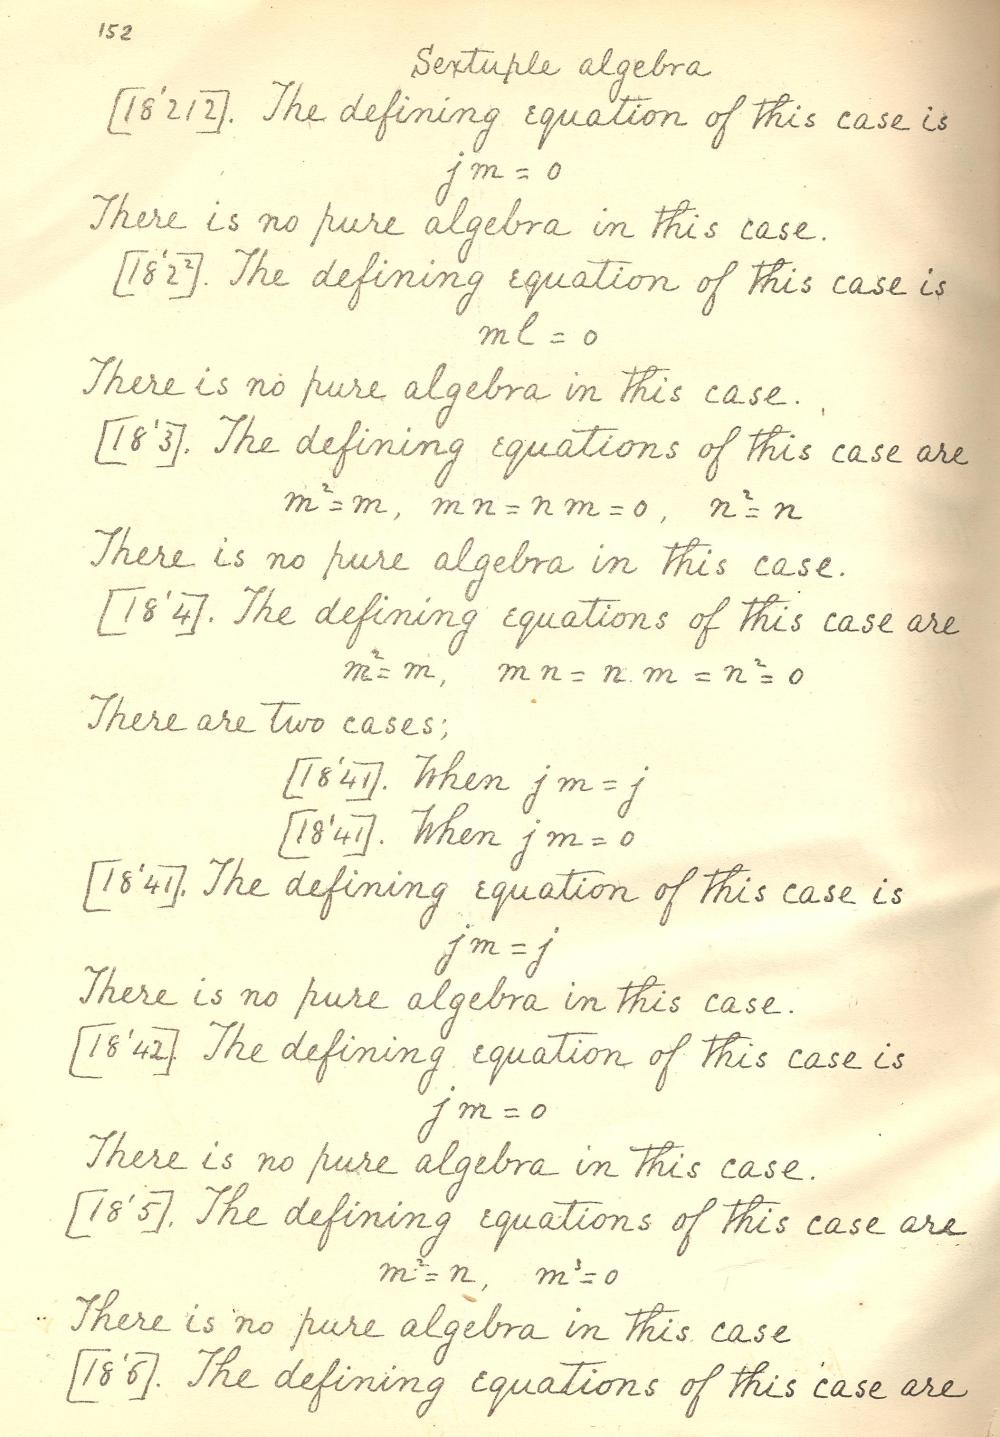 152
Sextuple algebra
[18'212]. The defining equation of this case is
jm = 0
There is no pure algebra in this case.
[18'2²]. The defining equation of this case is
ml = 0
There is no pure algebra in this case.
[18'3]. The defining equations of this case are
m² = m, mn = nm = 0, n² = n
There is no pure algebra in this case.
[18'4]. The defining equations of this case are
m² = m, mn = nm = n² = 0
There are two cases;
[18'41]. When jm = j
[18'41]. When jm = 0
[18'41]. The defining equation of this case is
jm = j
There is no pure algebra in this case.
[18'42]. The defining equation of this case is
jm = 0
There is no pure algebra in this case.
[18'5]. The defining equations of this case are
m² = n, m³ = 0
There is no pure algebra in this case
[18'6]. The defining equations of this case are